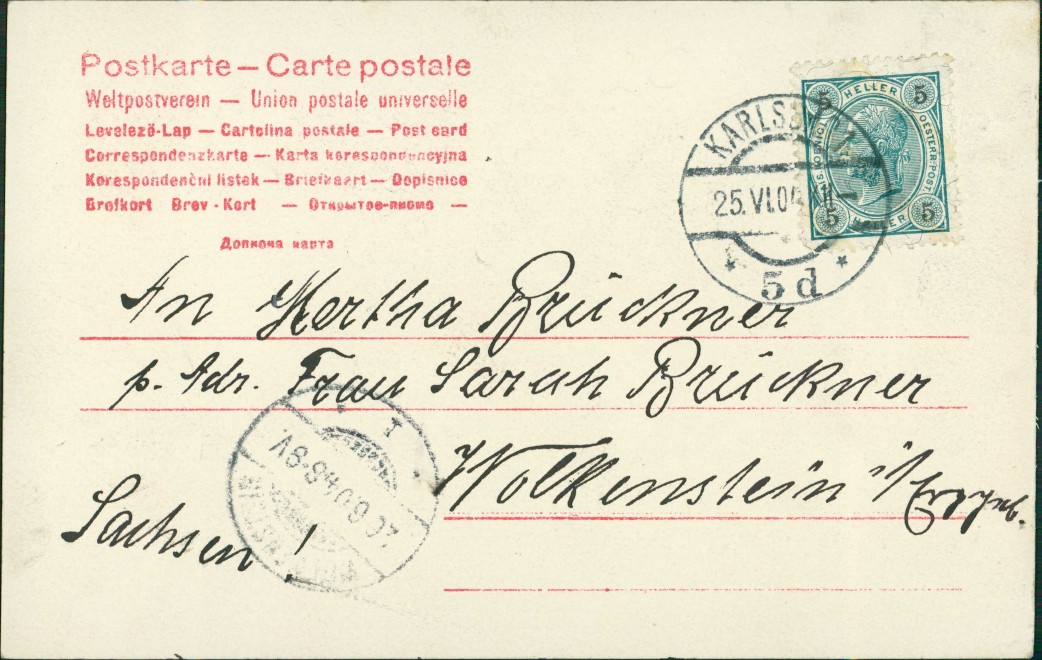 Postkarte – Carte postale
Weltpostverein — Union postale universelle
Levelező-Lap — Cartolina postale — Post card
Correspondenzkarte — Karta korespondencyjna
Korespondenční lístek — Briefkaart — Dopisnice
Brefkort Brev-Kort — Открытое-письмо —
Допкона карта
HELLER
5 5
OESTERR. POST.
HELLER
5 5
25.VI.04
* 5d *
An Hertha Brückner
p. Adr. Frau Sarah Brückner
Wolkenstein i/Erzgeb.
Sachsen!